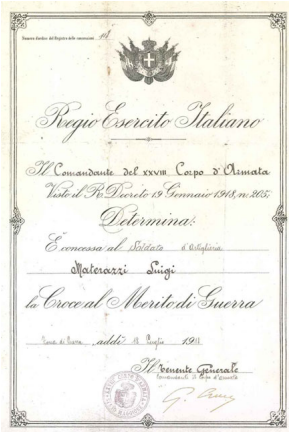 Numero d'ordine del Registro delle concessioni 418
Regio Esercito Italiano
Il Comandante del XXVIII Corpo d'Armata
Visto il R. Decreto 19 Gennaio 1918, n. 205;
Determina:
È concessa al Soldato d'Artiglieria
Materazzi Luigi
la Croce al Merito di Guerra
Zona di Guerra, addì Luglio 191
Il Tenente Generale
Comandante il Corpo d'Armata